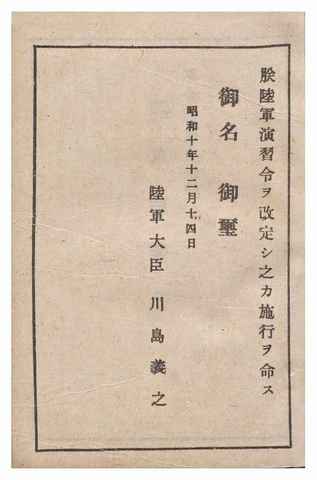 朕陸軍演習令ヲ改定シ之カ施行ヲ命ス
御名 御璽
昭和十年十二月十四日
陸軍大臣 川島義之